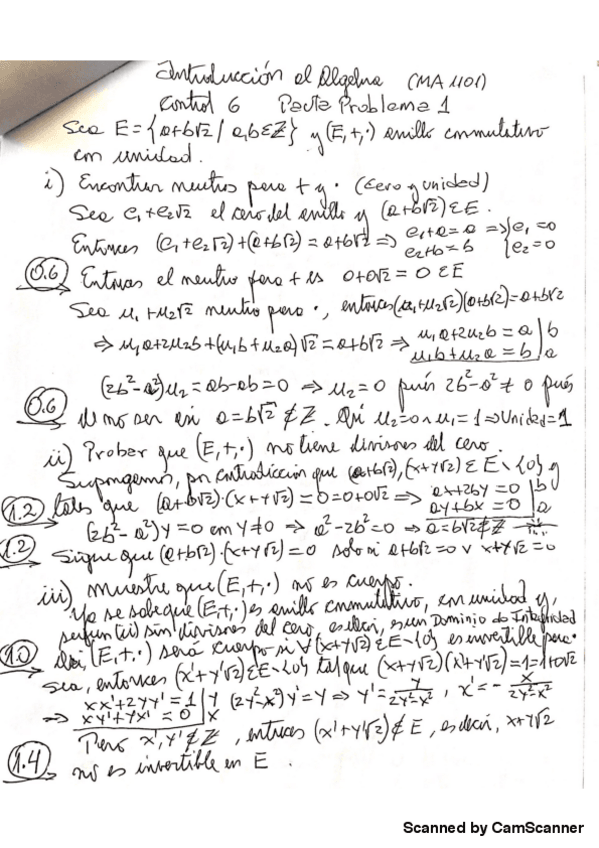 Introducción al Algebra (MA 1101)
Control 6 Pauta Problema 1
Sea E={a+b√2 / a,b∈Z} y (E,+,·) anillo conmutativo
con unidad.
i) Encontrar neutros para + y · (cero y unidad)
Sea e₁+e₂√2 el cero del anillo y (a+b√2)∈E.
Entonces (e₁+e₂√2)+(a+b√2)=a+b√2 ⇒ e₁+a=a ⇒ {e₁=0
e₂+b=b {e₂=0
0.6 Entonces el neutro para + es 0+0√2=0∈E
Sea u₁+u₂√2 neutro para ·, entonces (u₁+u₂√2)(a+b√2)=a+b√2
⇒ u₁a+2u₂b+(u₁b+u₂a)√2=a+b√2 ⇒ u₁a+2u₂b=a | b
u₁b+u₂a=b | a
(2b²-a²)u₂=ab-ab=0 ⇒ u₂=0 pués 2b²-a²≠0 pués
0.6 de no ser así a=b√2∉Z. Así u₂=0 ∧ u₁=1 ⇒ Unidad=1
ii) Probar que (E,+,·) no tiene divisores del cero.
Supongamos, por contradicción que (a+b√2),(x+y√2)∈E\{0} y
1.2 tales que (a+b√2)·(x+y√2)=0=0+0√2 ⇒ ax+2by=0 | b
ay+bx=0 | a
(2b²-a²)y=0 con y≠0 ⇒ a²-2b²=0 ⇒ a=b√2∉Z
1.2 Sigue que (a+b√2)·(x+y√2)=0 solo si a+b√2=0 ∨ x+y√2=0
iii) Muestre que (E,+,·) no es cuerpo.
Ya se sabe que (E,+,·) es anillo conmutativo, con unidad y,
según (ii) sin divisores del cero, es decir, es un Dominio de Integridad
1.0 Así, (E,+,·) será cuerpo si ∀(x+y√2)∈E\{0} es invertible para ·
sea, entonces (x'+y'√2)∈E\{0} tal que (x+y√2)(x'+y'√2)=1=1+0√2
xx'+2yy'=1 | y (2y²-x²)y'=y ⇒ y'=y/(2y²-x²), x'=-x/(2y²-x²)
⇒ xy'+yx'=0 | x
Pero x',y'∉Z, entonces (x'+y'√2)∉E, es decir, x+y√2
1.4 no es invertible en E.
Scanned by CamScanner